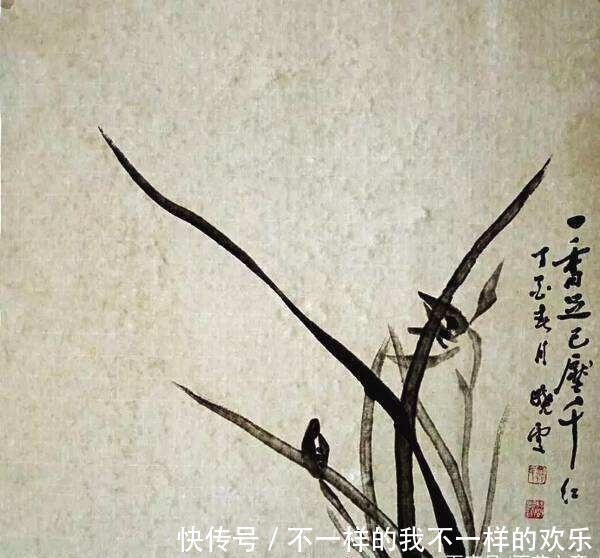 一香足已壓千红
丁酉春月曉
快传号 / 不一样的我不一样的欢乐